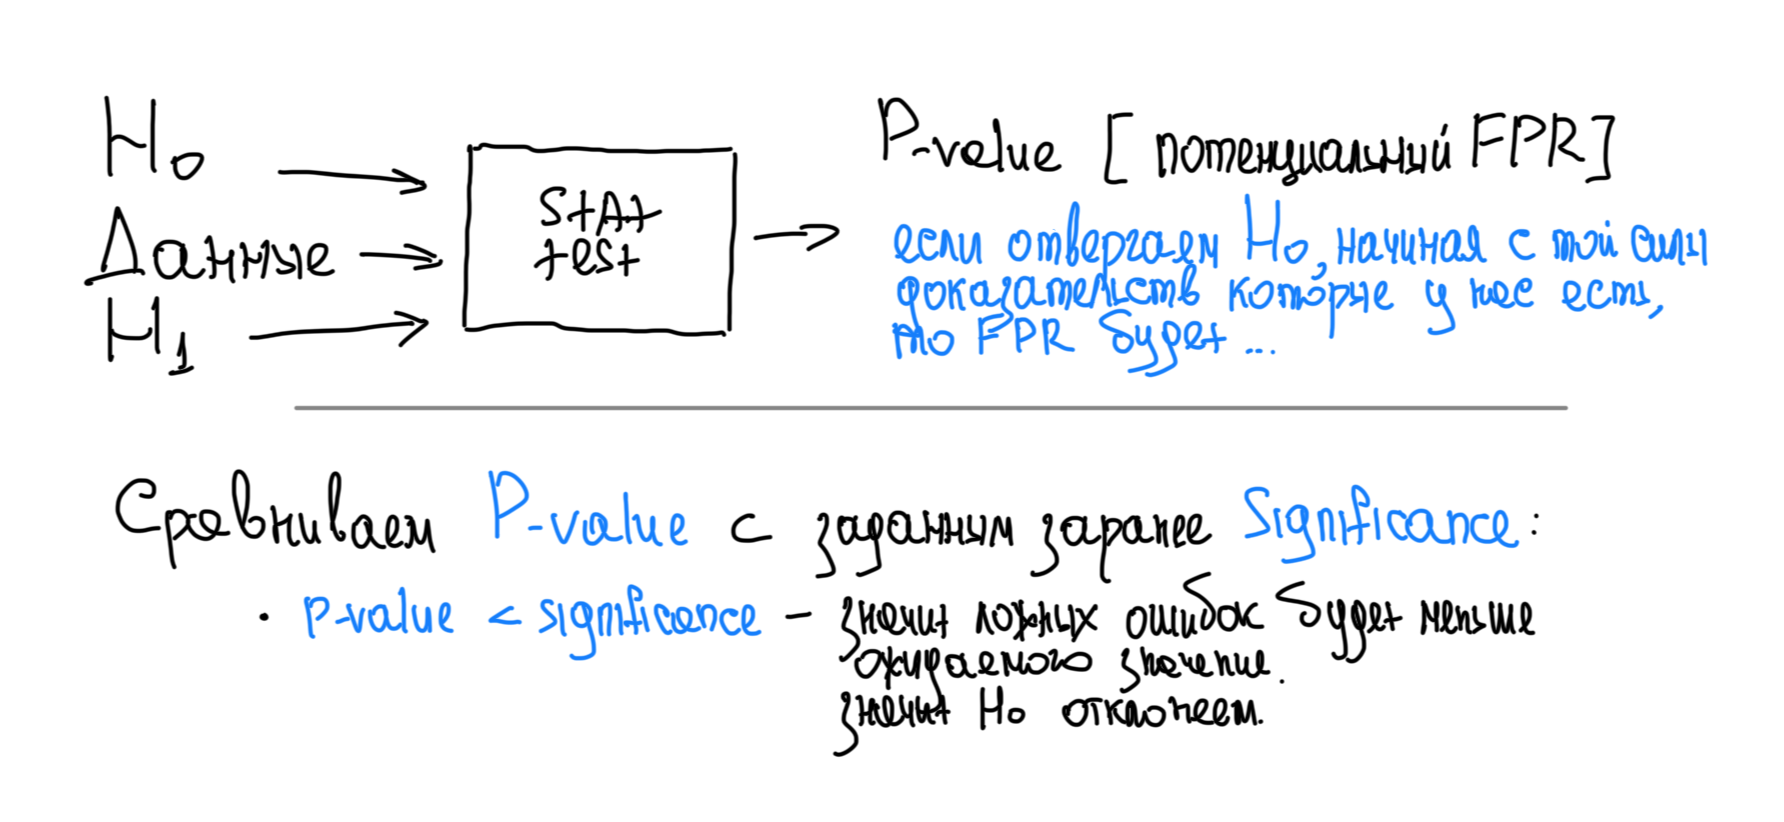 H0
Данные
H1
StAt
test
P-value [потенциальный FPR]
если отвергаем H0, начиная с той силы
доказательств которые у нас есть,
то FPR будет ...
Сравниваем P-value с заданным заранее Significance:
• p-value < significance – значит ложных ошибок будет меньше
ожидаемого значение.
значит H0 отклонеем.